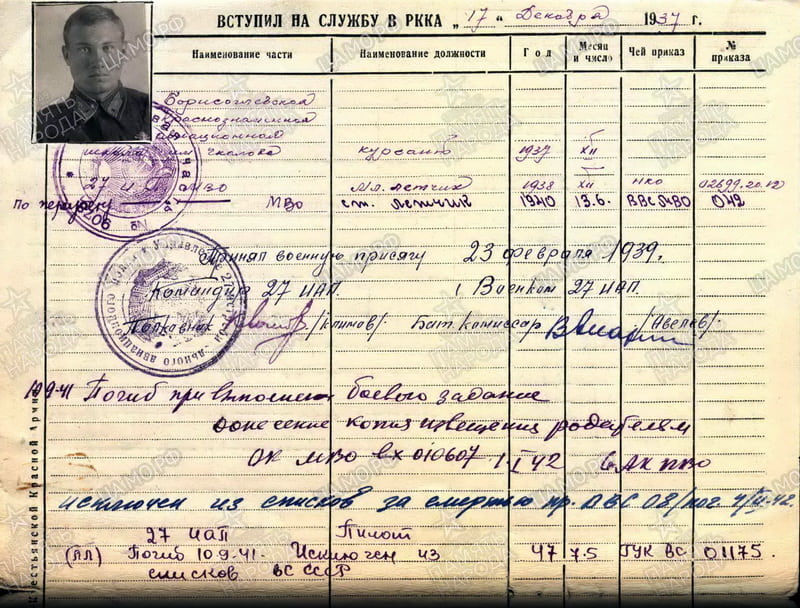 ВСТУПИЛ НА СЛУЖБУ В РККА „17“ Декабря 1937 г.
Наименование части Наименование должности Год Месяц и число Чей приказ № приказа
Борисоглебская
краснознаменная
авиационная
школа им Чкалова курсант 1937 XII
27 ИАП МВО мл. летчик 1938 XII НКО 02699. 20.12
По МВО ст. летчик 1940 13.6. ВВС МВО 042
Принял военную присягу 23 февраля 1939.
Командир 27 ИАП. Военком 27 ИАП.
Полковник /Климов/ Бат. комиссар /Авелев/.
10.9.41 Погиб при выполнении боевого задание
донесение копия извещения родителям
ОК МВО вх 010607 1.I 42 6 АК ПВО
исключен из списков за смертью пр. ВВС
27 ИАП Пилот
(пл) Погиб 10.9.41. Исключен из 47 7.5 ГУК ВС 01175.
списков ВС СССР
рестьянской Красной Армии
ПАМЯТЬ НАРОДА
ЦАМО.РФ